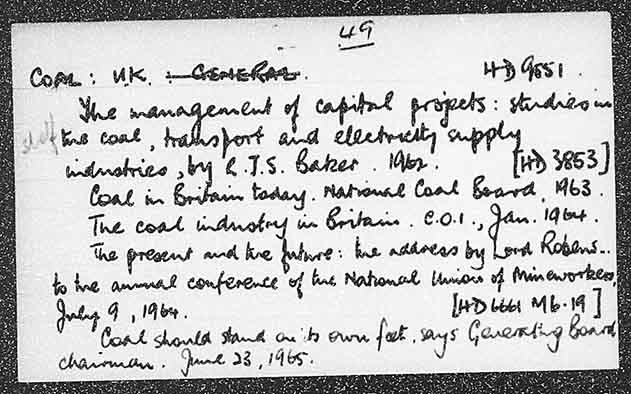 49
COAL: U.K. : GENERAL. HD 9551.
The management of capital projects: studies in
the coal, transport and electricity supply
industries, by R.J.S. Baker. 1962. [HD 3853]
Coal in Britain today. National Coal Board, 1963.
The coal industry in Britain. C.O.I., Jan. 1964.
The present and the future: the address by Lord Robens..
to the annual conference of the National Union of Mineworkers,
July 9, 1964. [HD 6661 M6.19]
Coal should stand on its own feet, says Generating Board
chairman. June 23, 1965.